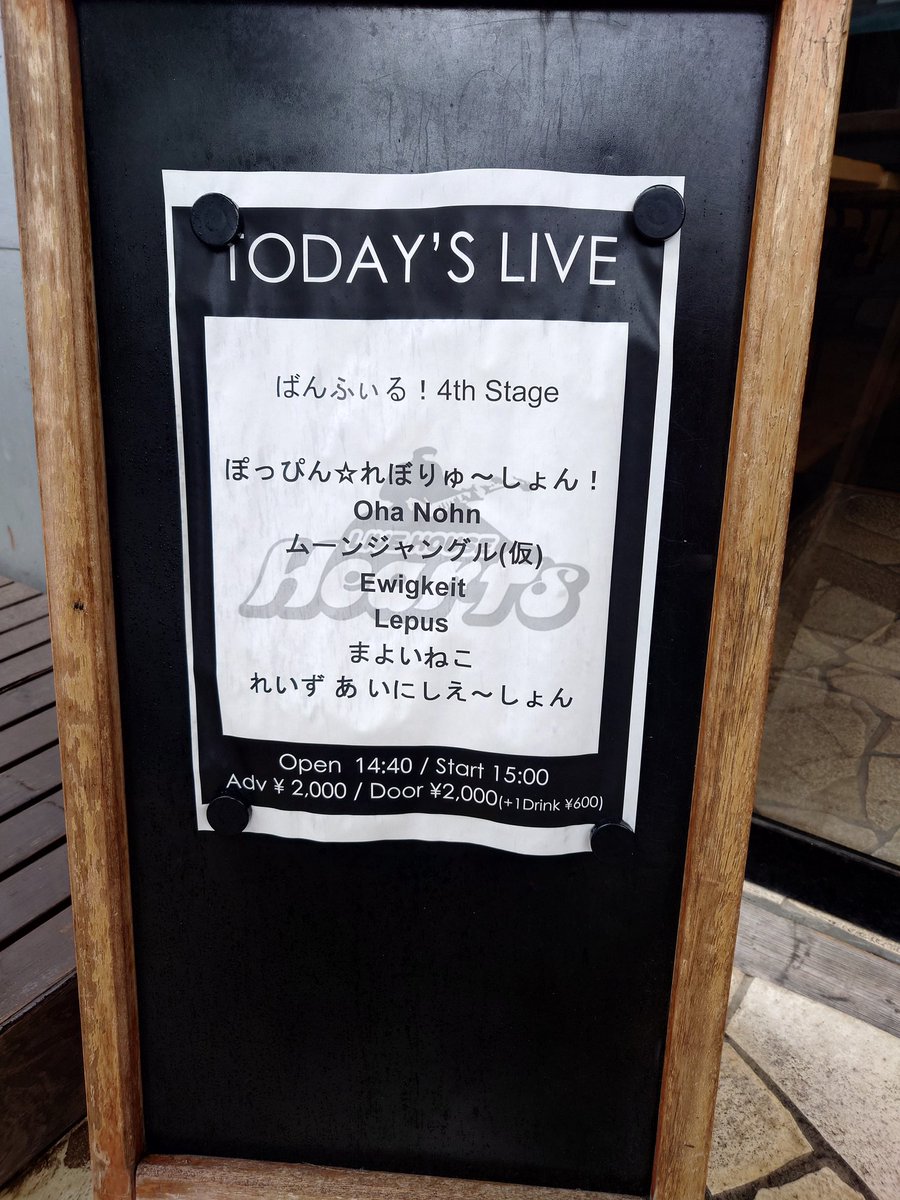 TODAY'S LIVE
ばんふぃる！4th Stage
ぽっぴん☆れぼりゅ～しょん！
Oha Nohn
ムーンジャングル(仮)
LIVE HOUSE
Ewigkeit
HeartS
Lepus
まよいねこ
れいず あ いにしえ～しょん
Open 14:40 / Start 15:00
Adv ¥ 2,000 / Door ¥2,000(+1Drink ¥600)